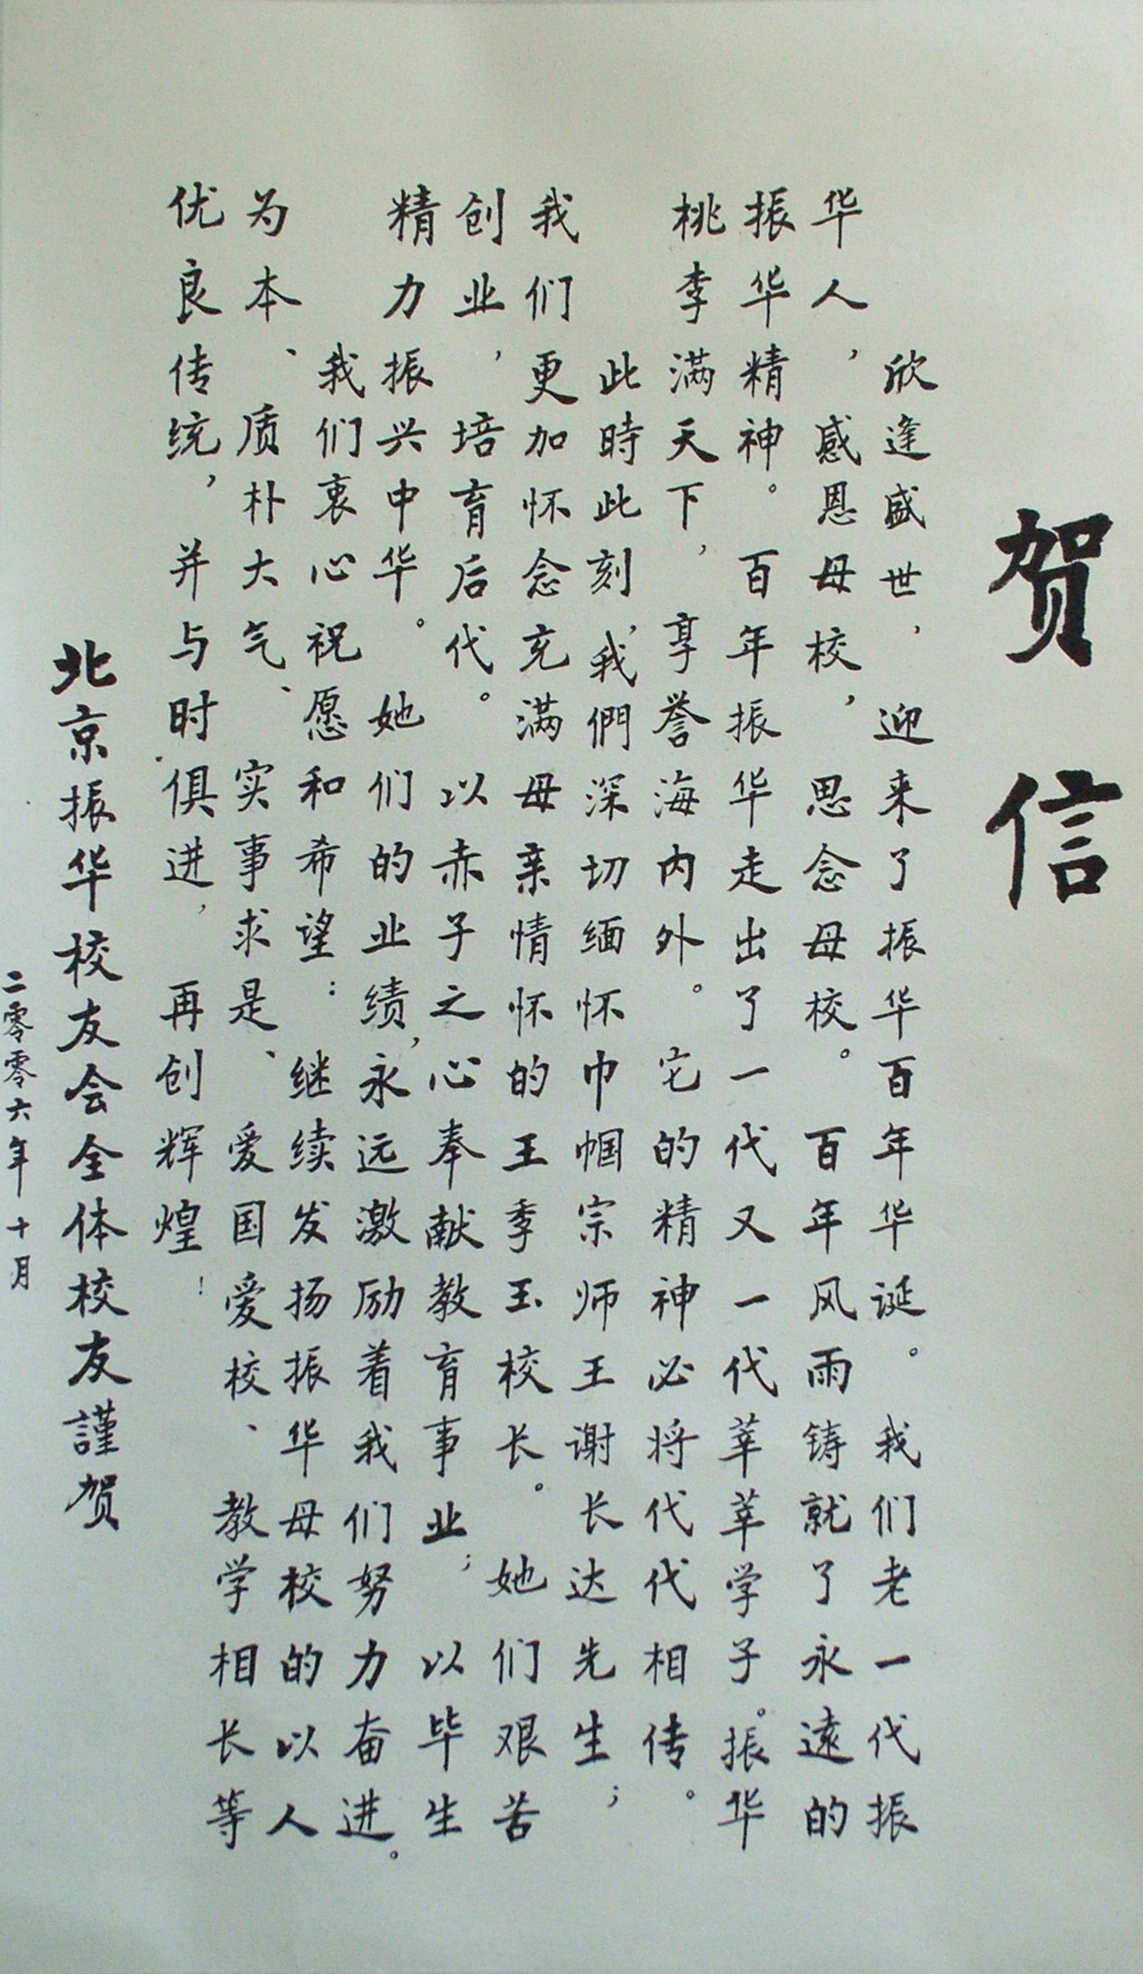 贺信
欣逢盛世，迎来了振华百年华诞。我们老一代振
华人，感恩母校，思念母校。百年风雨铸就了永遠的
振华精神。百年振华走出了一代又一代莘莘学子。振华
桃李满天下，享誉海内外。它的精神必将代代相传。
此時此刻，我們深切缅怀巾帼宗师王谢长达先生；
我们更加怀念充满母亲情怀的王季玉校长。她们艰苦
创业，培育后代。以赤子之心奉献教育事业；以毕生
精力振兴中华。她们的业绩，永远激励着我们努力奋进。
我们衷心祝愿和希望：继续发扬振华母校的以人
为本、质朴大气、实事求是、爱国爱校、教学相长等
优良传统，并与时俱进，再创辉煌！
北京振华校友会全体校友謹贺
二零零六年十月